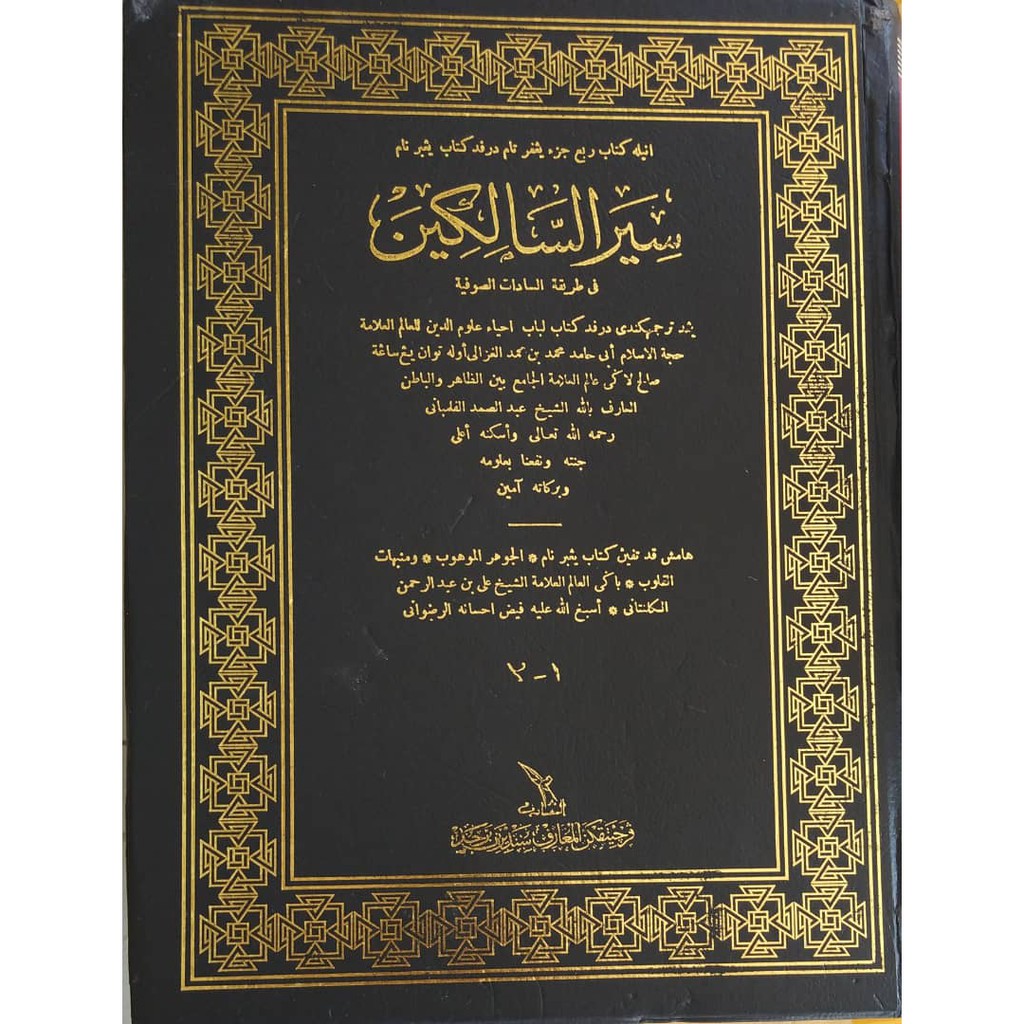 انيله كتاب ربع جزء يڠفر تام درفد كتاب يڠبر نام
سِيَرُ السَّالِكِينَ
فى طريقة السادات الصوفية
يڠد ترجمهكندى درفد كتاب لباب احياء علوم الدين للعالم العلامة
حجة الاسلام أبى حامد محمد بن محمد الغزالى أوله توان يڠ ساڠة
صالح لاكى عالم العلامة الجامع بين الظاهر والباطن
العارف بالله الشيخ عبد الصمد الفلمبانى
رحمه الله تعالى وأسكنه أعلى
جنته ونفعنا بعلومه
وبركاته آمين
هامش قد تفين كتاب يڠبر نام * الجوهر الموهوب * ومنبهات
القلوب * باكى العالم العلامة الشيخ على بن عبد الرحمن
الكلنتانى * أسبغ الله عليه فيض احسانه الرضوانى
١ - ٢
المعارف
فرچيتقكن المعارف سنديرين برحد